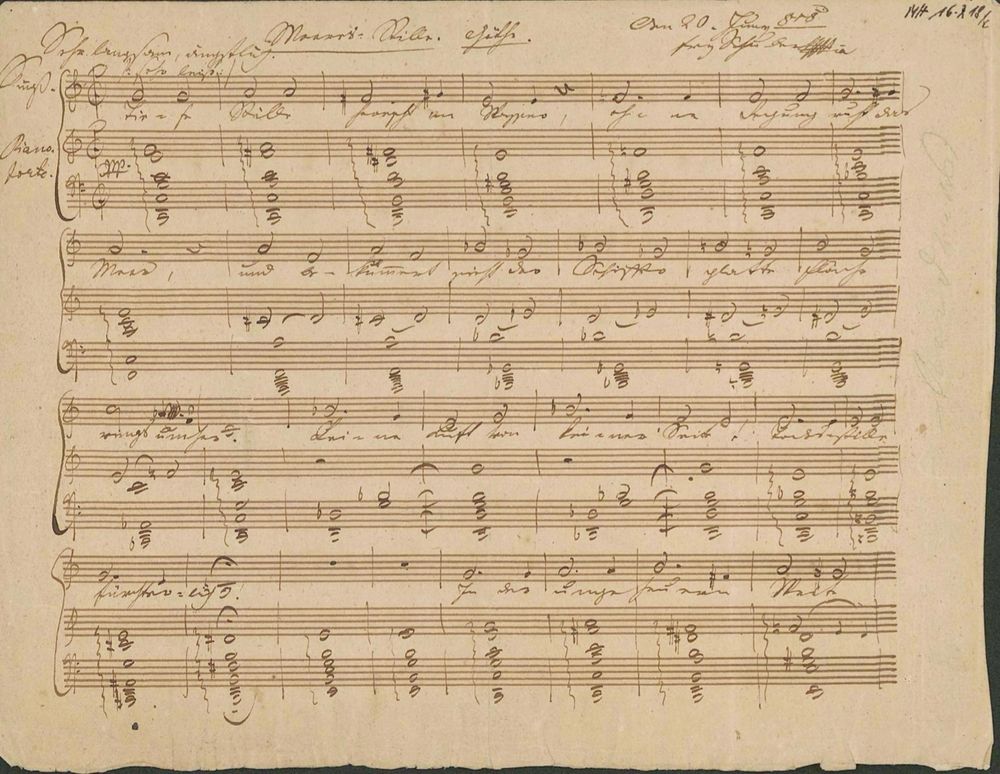 Meeres-Stille. Göthe. Den 20. Juny 815
Sehr langsam, ängstlich. frz Schubert
Singst.
sehr leise
Tiefe Stille herrscht im Wasser, ohne Regung ruht das
Piano-
forte.
ppp.
Meer, und bekümmert sieht der Schiffer glatte Fläche
rings umher. Keine Luft von keiner Seite! Todesstille
fürchterlich!. In der ungeheuern Weite